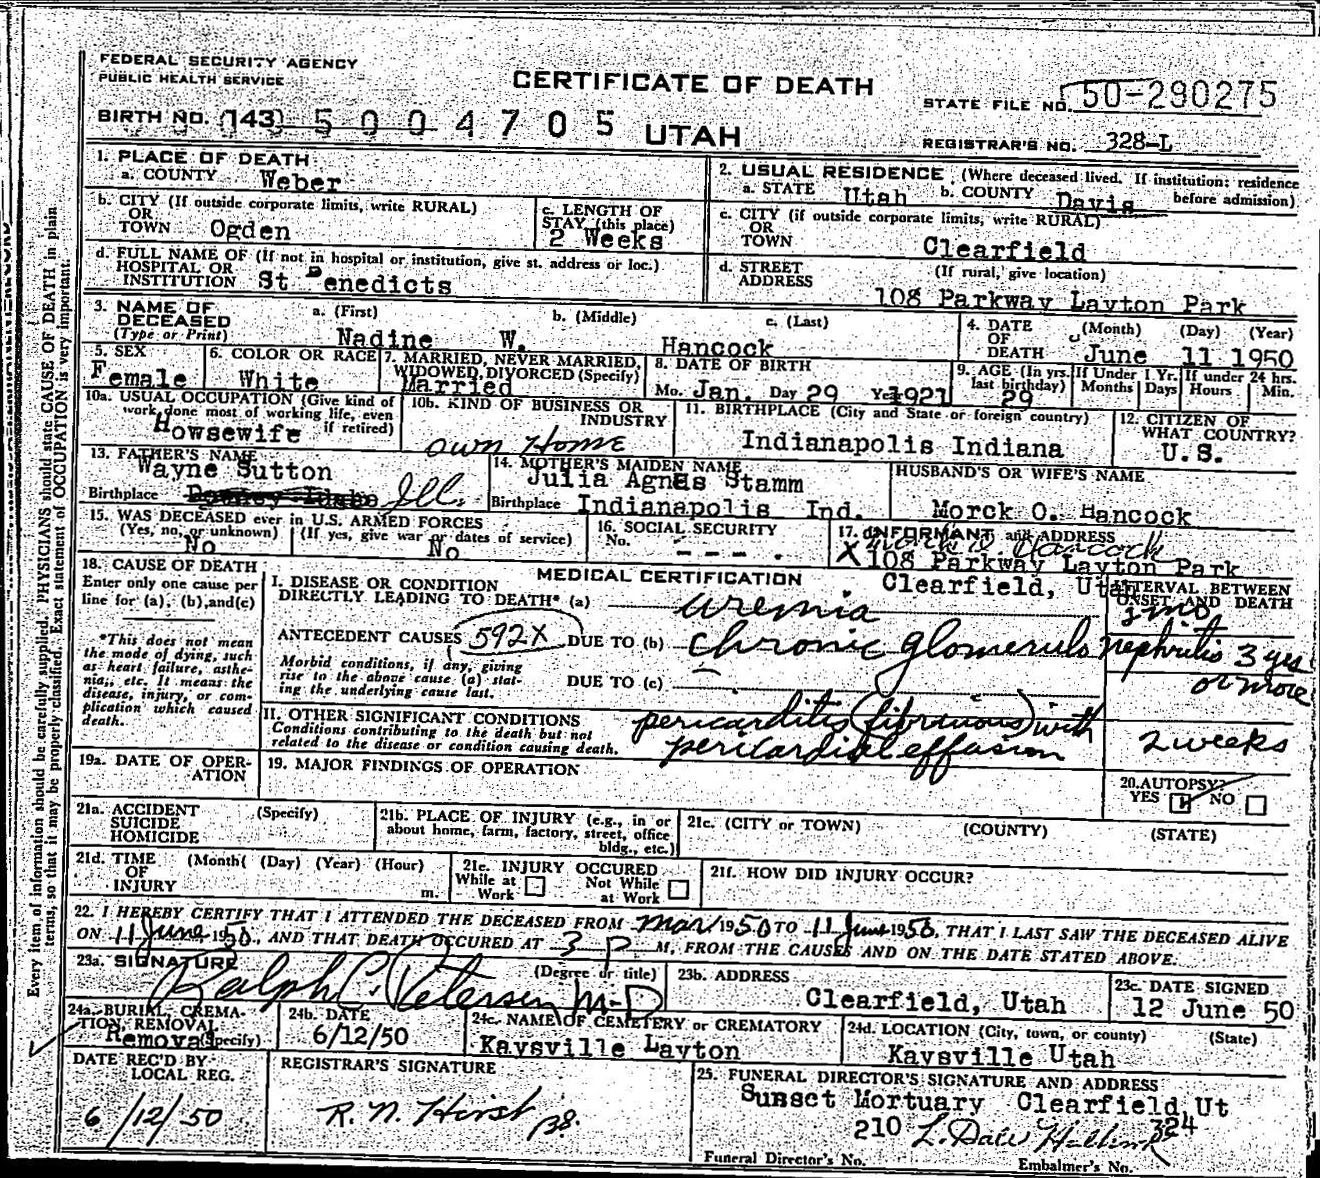 FEDERAL SECURITY AGENCY
PUBLIC HEALTH SERVICE
CERTIFICATE OF DEATH
STATE FILE NO. 50-290275
BIRTH NO. (143) 5 0 0 4 7 0 5 UTAH
REGISTRAR'S NO. 328-L
1. PLACE OF DEATH
a. COUNTY Weber
2. USUAL RESIDENCE (Where deceased lived. If institution: residence before admission)
a. STATE Utah b. COUNTY Davis
b. CITY (If outside corporate limits, write RURAL)
OR
TOWN Ogden
c. LENGTH OF
STAY (this place)
2 Weeks
c. CITY (if outside corporate limits, write RURAL)
OR
TOWN Clearfield
d. FULL NAME OF (If not in hospital or institution, give st. address or loc.)
HOSPITAL OR
INSTITUTION St Benedicts
d. STREET
ADDRESS
(If rural, give location)
108 Parkway Layton Park
3. NAME OF
DECEASED
(Type or Print)
a. (First) b. (Middle) c. (Last)
Nadine W. Hancock
4. DATE
OF
DEATH
(Month) (Day) (Year)
June 11 1950
5. SEX
Female
6. COLOR OR RACE
White
7. MARRIED, NEVER MARRIED,
WIDOWED, DIVORCED (Specify)
Married
8. DATE OF BIRTH
Mo. Jan. Day 29 Yr. 1921
9. AGE (In yrs.
last birthday)
29
If Under 1 Yr.
Months Days
If under 24 hrs.
Hours Min.
10a. USUAL OCCUPATION (Give kind of
work done most of working life, even
if retired)
Howsewife
10b. KIND OF BUSINESS OR
INDUSTRY
own Home
11. BIRTHPLACE (City and State or foreign country)
Indianapolis Indiana
12. CITIZEN OF
WHAT COUNTRY?
U.S.
13. FATHER'S NAME
Wayne Sutton
Birthplace Downey Idaho Ill.
14. MOTHER'S MAIDEN NAME
Julia Agnes Stamm
Birthplace Indianapolis Ind.
HUSBAND'S OR WIFE'S NAME
Morck O. Hancock
15. WAS DECEASED ever in U.S. ARMED FORCES
(Yes, no, or unknown) (If yes, give war or dates of service)
No No
16. SOCIAL SECURITY
No.
- - - -
17. INFORMANT and ADDRESS
X Hancock
108 Parkway Layton Park
Clearfield, Utah
18. CAUSE OF DEATH
Enter only one cause per
line for (a), (b), and (c)
*This does not mean
the mode of dying, such
as heart failure, asthe-
nia, etc. It means the
disease, injury, or com-
plication which caused
death.
MEDICAL CERTIFICATION
INTERVAL BETWEEN
ONSET AND DEATH
I. DISEASE OR CONDITION
DIRECTLY LEADING TO DEATH* (a) uremia mo
ANTECEDENT CAUSES 592X DUE TO (b) chronic glomerulo nephritis 3 yrs
or more
Morbid conditions, if any, giving
rise to the above cause (a) stat-
ing the underlying cause last.
DUE TO (c)
II. OTHER SIGNIFICANT CONDITIONS
Conditions contributing to the death but not
related to the disease or condition causing death.
pericarditis (fibrinous) with
pericardial effusion
2 weeks
19a. DATE OF OPER-
ATION
19. MAJOR FINDINGS OF OPERATION
20. AUTOPSY?
YES NO
21a. ACCIDENT
SUICIDE
HOMICIDE
(Specify)
21b. PLACE OF INJURY (e.g., in or
about home, farm, factory, street, office
bldg., etc.)
21c. (CITY or TOWN) (COUNTY) (STATE)
21d. TIME
OF
INJURY
(Month( (Day) (Year) (Hour)
m.
21e. INJURY OCCURED
While at
Work
Not While
at Work
21f. HOW DID INJURY OCCUR?
22. I HEREBY CERTIFY THAT I ATTENDED THE DECEASED FROM Mar 1950 TO 11 June 1950, THAT I LAST SAW THE DECEASED ALIVE
ON 11 June 1950, AND THAT DEATH OCCURED AT 3 P M, FROM THE CAUSES AND ON THE DATE STATED ABOVE.
23a. SIGNATURE (Degree or title)
Ralph C. Petersen M-D
23b. ADDRESS
Clearfield, Utah
23c. DATE SIGNED
12 June 50
24a. BURIAL, CREMA-
TION REMOVAL
(Specify)
Removal
24b. DATE
6/12/50
24c. NAME OF CEMETERY or CREMATORY
Kaysville Layton
24d. LOCATION (City, town, or county) (State)
Kaysville Utah
DATE REC'D BY
LOCAL REG.
6/12/50
REGISTRAR'S SIGNATURE
R. N. Hirst
25. FUNERAL DIRECTOR'S SIGNATURE AND ADDRESS
Sunset Mortuary Clearfield, Ut
210 L. Dale 324
Funeral Director's No. Embalmer's No.
Every item of information should be carefully supplied. PHYSICIANS should state CAUSE OF DEATH in plain
terms, so that it may be properly classified. Exact statement of OCCUPATION is very important.